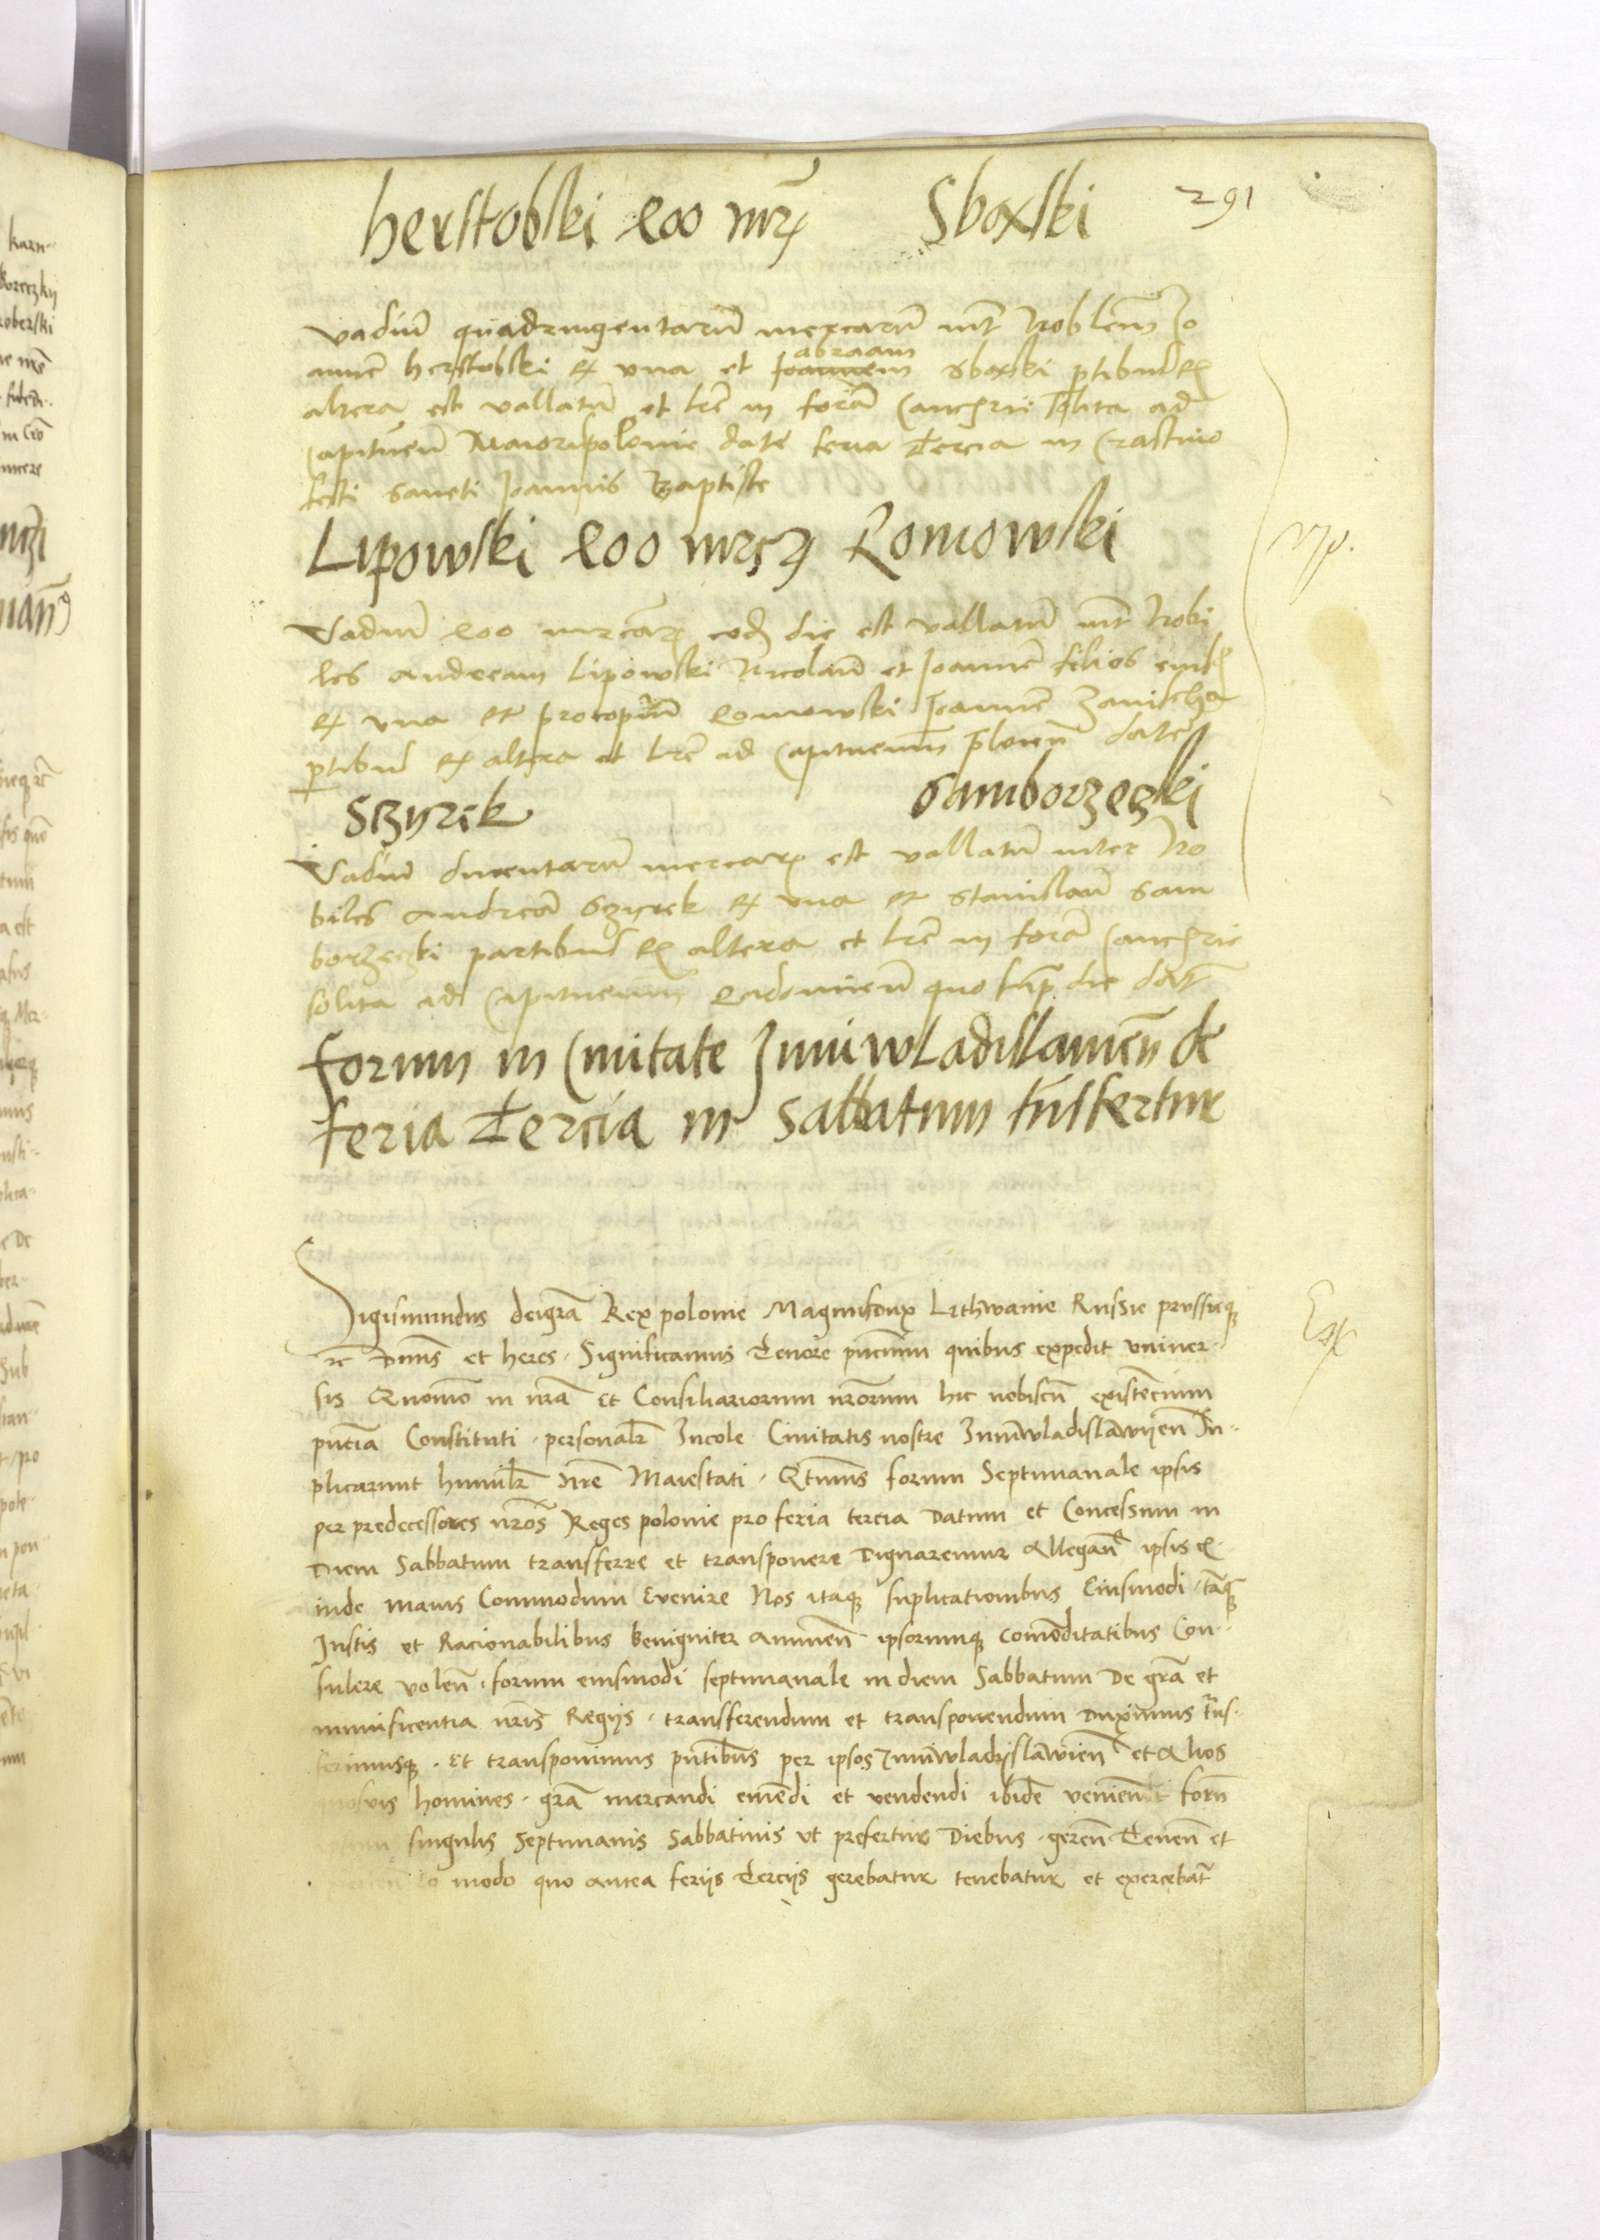 291
herstobski 400 mrc Sboxski
vadiu᷃ quadringentaru᷃ mercaru᷃ int᷃ Nobilem Jo
anne᷃ herstobski ex vna et Joannem abraam sboxski ptibus ex
altera est vallatu᷃ et lr᷃e in forma Cancrie solita ad
Capitneu᷃ Maiorispolonie date feria Tercia in Crastino
festi sancti Joannis Baptiste
Lipowski 400 mrcs Lomowski
Vadiu᷃ 400 mrcar eod᷃ die est vallatu᷃ int᷃ Nobi
les Andream Lipowski Nicolau᷃ et Joanne᷃ filios eiusd᷃
ex vna et procopiu᷃ Lomowski Joanne᷃
ptibus ex altera et lr᷃e ad Capitneum date
Szyrik Samborzeczki
Vadiu᷃ ducentaru᷃ mercar est vallatu᷃ inter No
biles Andrea᷃ Szyrek ex vna et Stanislau᷃ Sam
borzeczki partibus ex altera et lr᷃e in forma Cancrie
solita ad Capitneum quo supra die dat᷃
Forum in Ciuitate Juniwladislauien᷃ de
feria Tercia in Sabbatum tra᷃nsfertur
Sigismundus dei gra᷃ Rex polonie Magnusdux Lithwanie Russie prussieq
rc᷃ Dn᷃s et heres · Significamus Tenore pn᷃cium quibus expedit vniuer·
sis Quomo᷃ in nr᷃a et Consiliariorum nr᷃orum hic nobiscu᷃ existe᷃cium
pn᷃cia Constituti · personalr᷃ Incole Ciuitatis nostre Juniwladislawien᷃ Su·
plicarunt humilr᷃ nr᷃e Maiestati · Qt᷃inus forum Septimanale ipsis
per predecessores nr᷃os Reges polonie pro feria tercia Datum et Concessum in
Diem Sabbatum transferre et transponere Dignaremur Allegan᷃ ipsis ex·
inde maius Commodum Euenire Nos itaq suplicationibus Eiusmodi · ta᷃q
Justis et Racionabilibus benigniter annuen᷃ ipsorumq como᷃ditatibus Con·
sulere volen᷃ · forum eiusmodi septimanale in diem Sabbatum De gra᷃ et
munificentia nr᷃is Regijs · transferendum et transponendum Duximus tra᷃ns·
ferimusq · Et transponimus pn᷃tibus per ipsos Juniwladislawien᷃ et Alios
quosuis homines · gra᷃ mercandi eme᷃di et vendendi ibide᷃ venien᷃ foru᷃
singulis Septimanis Sabbatinis vt prefertur Diebus · geren᷃ Tenen᷃ et
eo modo quo antea ferijs Tercijs gerebatur tenebatur et exercebat᷃